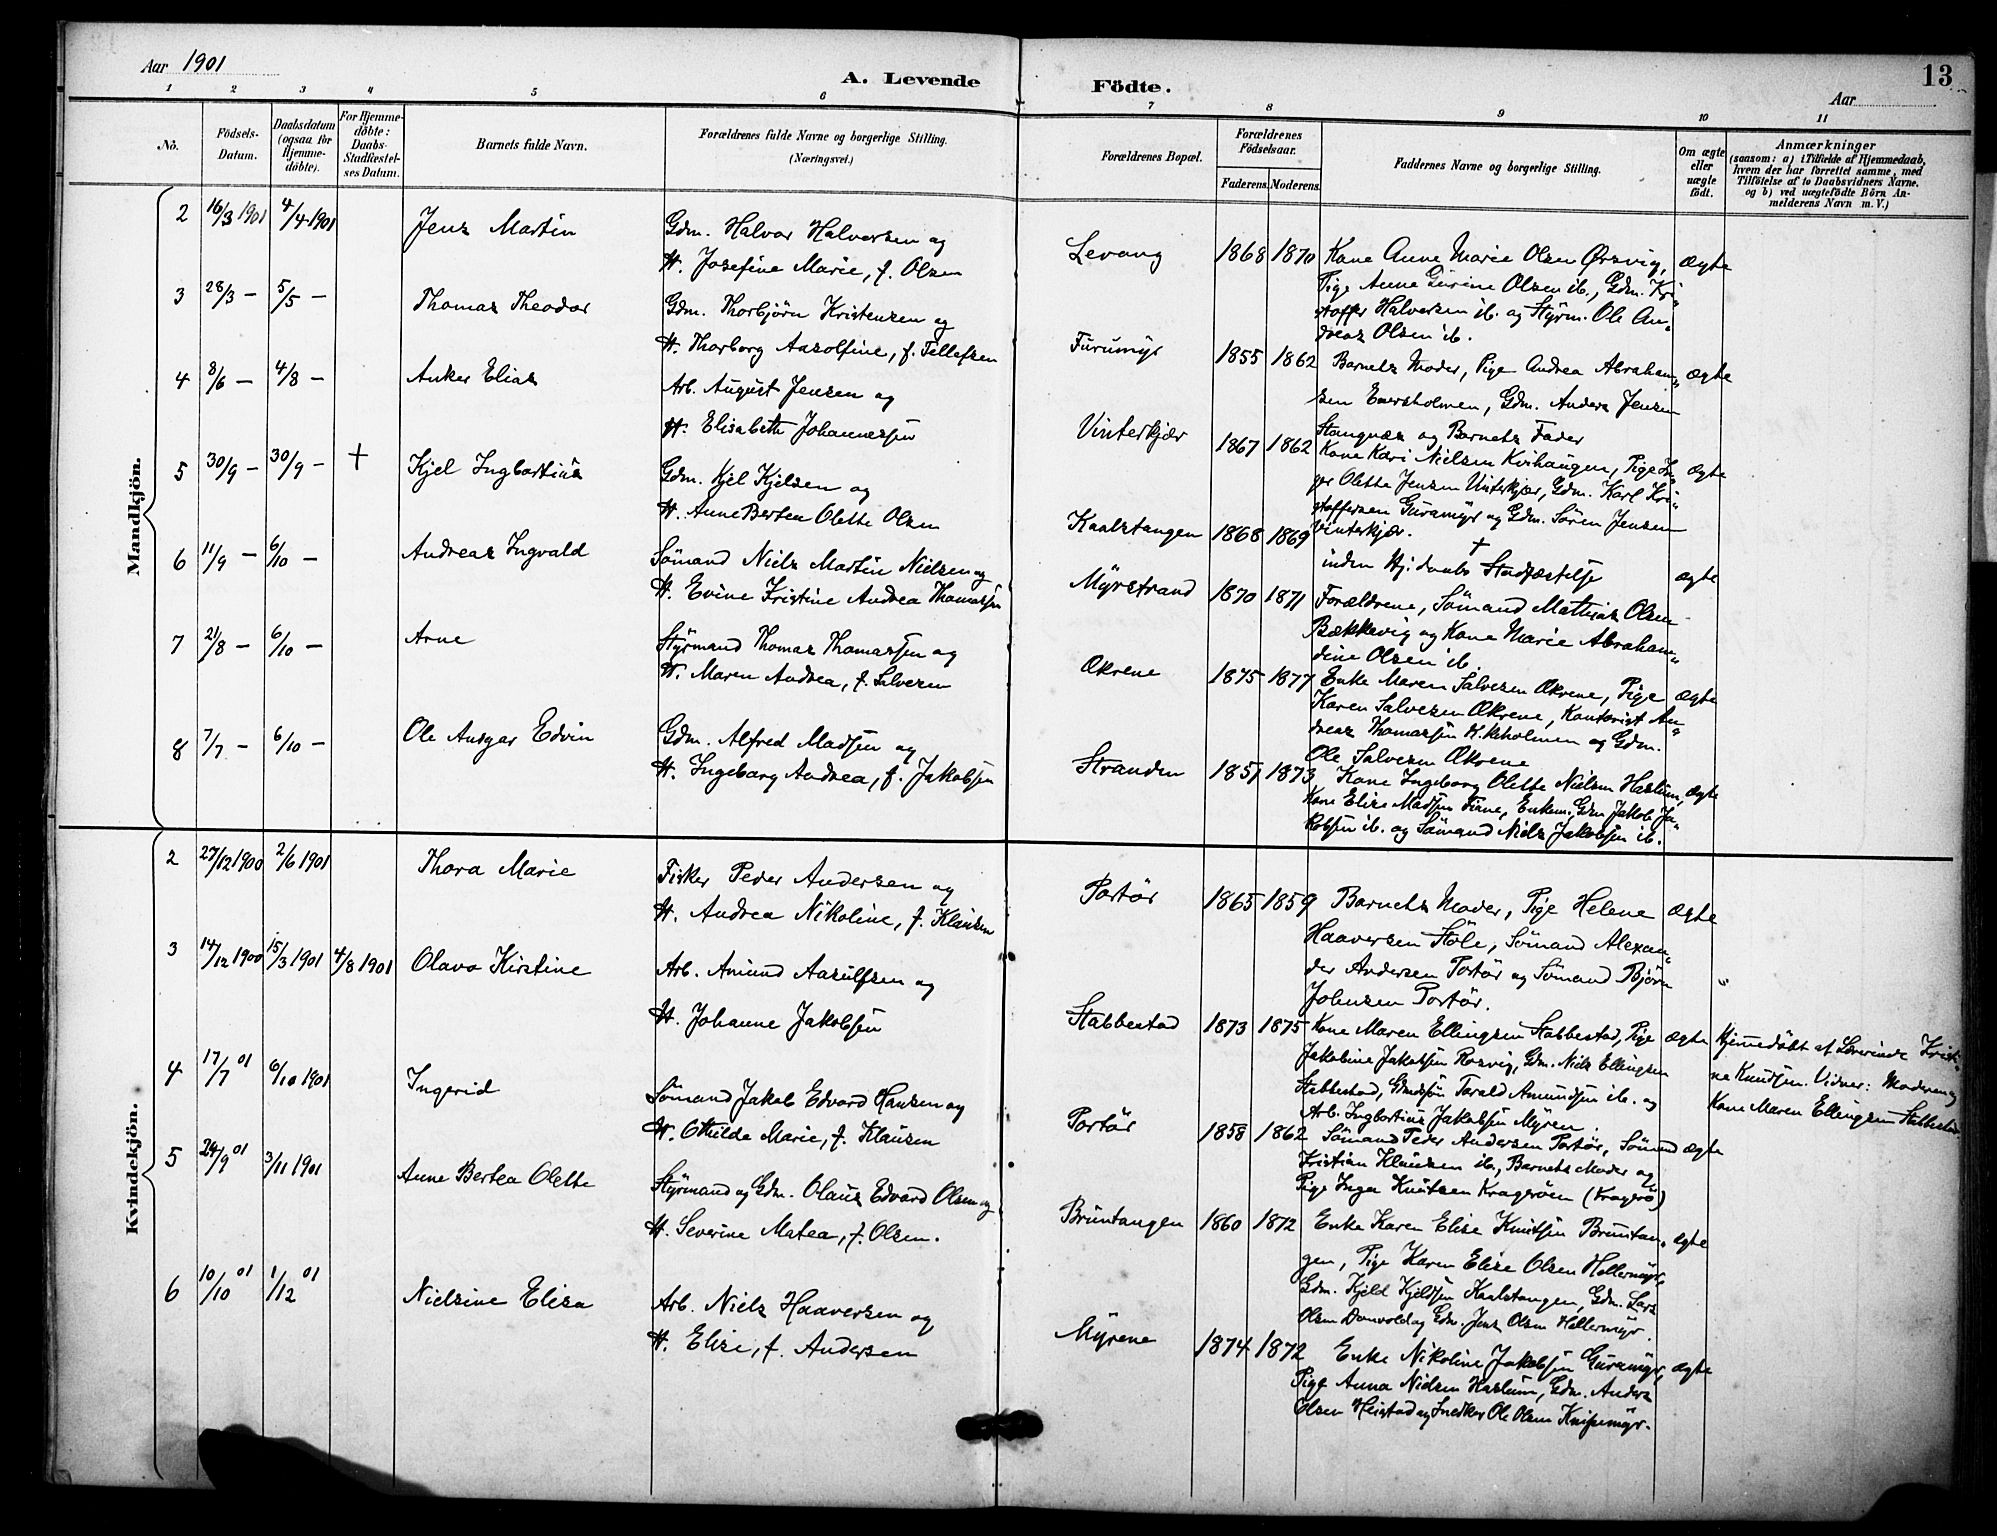 Aar 1901
A. Levende
Födte.
13
Aar
1 2 3 4 5 6 7 8 9 10 11
No.
Födsels-
Datum.
Daabsdatum
(ogsaa for
Hjemme-
döbte).
For Hjemme-
döbte:
Daabs-
Stadfæstel-
ses Datum.
Barnets fulde Navn.
Forældrenes fulde Navne og borgerlige Stilling.
(Næringsvei.)
Forældrenes Bopæl.
Forældrenes
Födselsaar.
Faderens. Moderens.
Faddernes Navne og borgerlige Stilling.
Om ægte
eller
uægte
födt.
Anmærkninger
(saasom: a) i Tilfælde af Hjemmedaab,
hvem der har forrettet samme, med
Tilföielse af to Daabsvidners Navne.
og b) ved uægtefödte Börn An-
melderens Navn m. V.)
Mandkjön.
2 16/3 1901 4/4 1901 Jens Martin
Gdm. Halvor Halvorsen og
H. Josefine Marie, f. Olsen
Levang 1868 1870
Kone Anne Marie Olsen Ørsvig, ægte
Pige Anne Gurine Olsen ib., Gdm. Kri-
stoffer Halvorsen ib. og Styrm. Ole An-
dreas Olsen ib.
3 28/3 — 5/5 — Thomas Theodor
Gdm. Thorbjörn Kristensen og
H. Thorborg Aasolfine, f. Tellefsen
Furumyr 1855 1862
Barnets Moder, Pige Andrea Abraham- ægte
sen Eversholmen, Gdm. Anders Jensen
Stangnæs og Barnets Fader
4 8/6 — 4/8 — Anker Elias
Arb. August Jensen og
H. Elisabeth Johannessen
Vinterkjær 1867 1862
Kone Kari Nielsen Kvihaugen, Pige In- ægte
ger Olette Jensen Vinterkjær, Gdm. Karl Kri-
stoffersen Guramyr og Gdm. Sören Jensen
Vinterkjær.
5 30/9 — 30/9 — + Kjel Ingbartius
Gdm. Kjel Kjelsen og
H. Anne Bertea Olette Olsen
Kaalstangen 1868 1869
+
inden Hj. daabs Stadfæstelse ægte
6 11/9 — 6/10 — Andreas Ingvald
Sömand Niels Martin Nielsen og
H. Evine Kristine Andrea Thomassen
Myrstrand 1870 1871
Forældrene, Sömand Mathias Olsen
Bækkevig og Kone Marie Abraham-
dine Olsen ib.
7 21/8 — 6/10 — Arne
Styrmand Thomas Thomassen og
H. Maren Andrea, f. Salvesen
Økrene 1875 1877
Enke Maren Salvesen Økrene, Pige ægte
Karen Salvesen Økrene, Kontorist An-
dreas Thomassen og Gdm.
Ole Salvesen Økrene
8 7/7 — 6/10 — Ole Ansgar Edvin
Gdm. Alfred Madsen og
H. Ingeborg Andrea, f. Jakobsen
Stranden 1851 1873
Kone Ingeborg Olette Nielsen Haslum, ægte
Kone Elise Madsen Fiane, Enkem. Gdm Jakob Ja-
kobsen ib. og Sömand Niels Jakobsen ib.
Kvindekjön.
2 27/12 1900 2/6 1901 Thora Marie
Fisker Peder Andersen og
H. Andrea Nikoline, f. Klausen
Portör 1865 1859
Barnets Moder, Pige Helene ægte
Haaversen Stöle, Sömand Alexan-
der Andersen Portör og Sömand Björn
Johnsen Portör.
3 14/12 1900 15/3 1901 4/8 1901 Olava Kirstine
Arb. Amund Aasulfsen og
H. Johanne Jakobsen
Stabbestad 1873 1875
Kone Maren Ellingsen Stabbestad, Pige ægte
Jakobine Jakobsen Rosvig, Gdm. Niels Ellingsen
Stabbestad, Gdmssön Tarald Amundsen ib. og
Arb. Ingbartius Jakobsen Myren.
Hjemmedöbt af Lærerinde Kristi-
ne Knudsen. Vidner: Moderen og
Kone Maren Ellingsen Stabbestad
4 17/7 01 6/10 1901 Ingerid
Sömand Jakob Edvard Hansen og
H. Othilde Marie, f. Klausen
Portör 1858 1862
Sömand Peder Andersen Portör, Sömand ægte
Kristian Klausen ib., Barnets Moder og
Pige Inga Knutsen Kragerøen (Kragerö)
5 24/9 01 3/11 1901 Anne Bertea Olette
Styrmand og Gdm. Olaus Edvard Olsen og
H. Severine Matea, f. Olsen.
Bruntangen 1860 1872
Enke Karen Elise Knutsen Bruntan- ægte
gen, Pige Karen Elise Olsen Hellermyr,
Gdm. Kjeld Kjeldsen Kaalstangen, Gdm. Lars
Olsen Donvold og Gdm. Jens Olsen Hellermyr.
6 10/10 01 1/12 01 Nielsine Elisa
Arb. Niels Haaversen og
H. Elise, f. Andersen
Myrene 1874 1872
Enke Nikoline Jakobsen Guramyr, ægte
Pige Anna Nielsen Haslum, Gdm. Anders
Olsen Heistad og Snedker Ole Olsen Knipemyr.